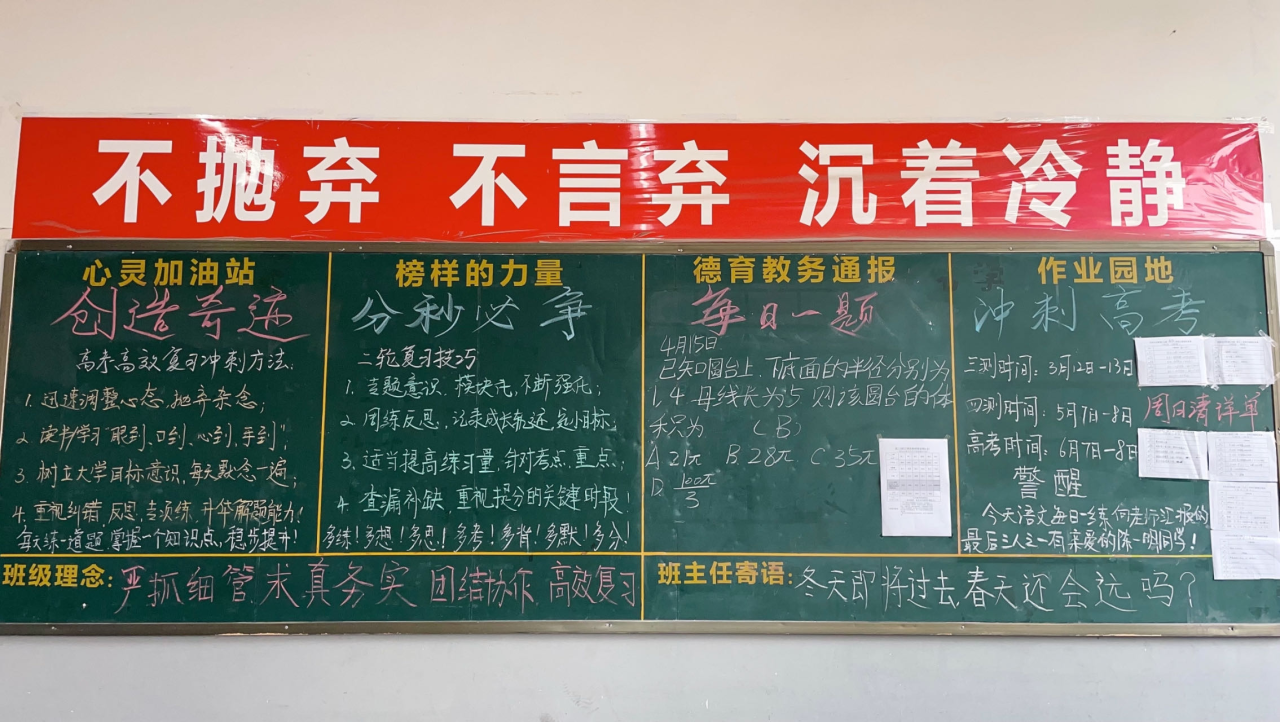 不抛弃 不言弃 沉着冷静
心灵加油站
创造奇迹
高考高效复习冲刺方法
1. 迅速调整心态,抛弃杂念;
2. 读书学习"眼到、口到、心到、手到";
3. 树立大学目标意识,每天默念一遍;
4. 重视纠错、反思、专项练、开平解题能力!
每天练一道题、掌握一个知识点,稳步提升!
榜样的力量
分秒必争
二轮复习技巧
1. 专题意识、模块化,不断强化;
2. 周练反思,记录成长轨迹,定小目标;
3. 适当提高练习量,针对考点、重点;
4. 查漏补缺,重视提分的关键时段!
多练!多想!多思!多考!多背!多默!多分!
德育教务通报
每日一题
4月15日
已知圆台上、下底面的半径分别为
1,4 母线长为5 则该圆台的体
积为 (B)
A 21π B. 28π C 35π
D. 100π/3
作业园地
冲刺高考
三测时间:3月12日-13日
四测时间:5月7日-8日
周日清详单
高考时间:6月7日-8日
警醒
今天语文每日一练向老师汇报的
最后三人之一有亲爱的陈一明同学!
班级理念:严抓细管 求真务实 团结协作 高效复习
班主任寄语:冬天即将过去,春天还会远吗?